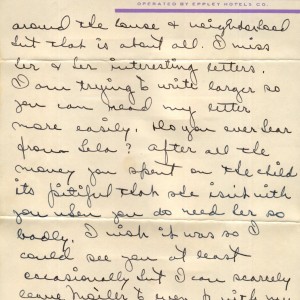 OPERATED BY EPPLEY HOTELS CO.
around the house & neighborhood
but that is about all. I miss
her & her interesting letters.
I am trying to write larger so
you can read my letter
more easily. Do you ever hear
from Lula? After all the
money you spent on the child
its pitiful that she isn't with
you when you do need her so
badly. I wish it was so I
could see you at least
occasionally but I can scarcely
leave to even with my